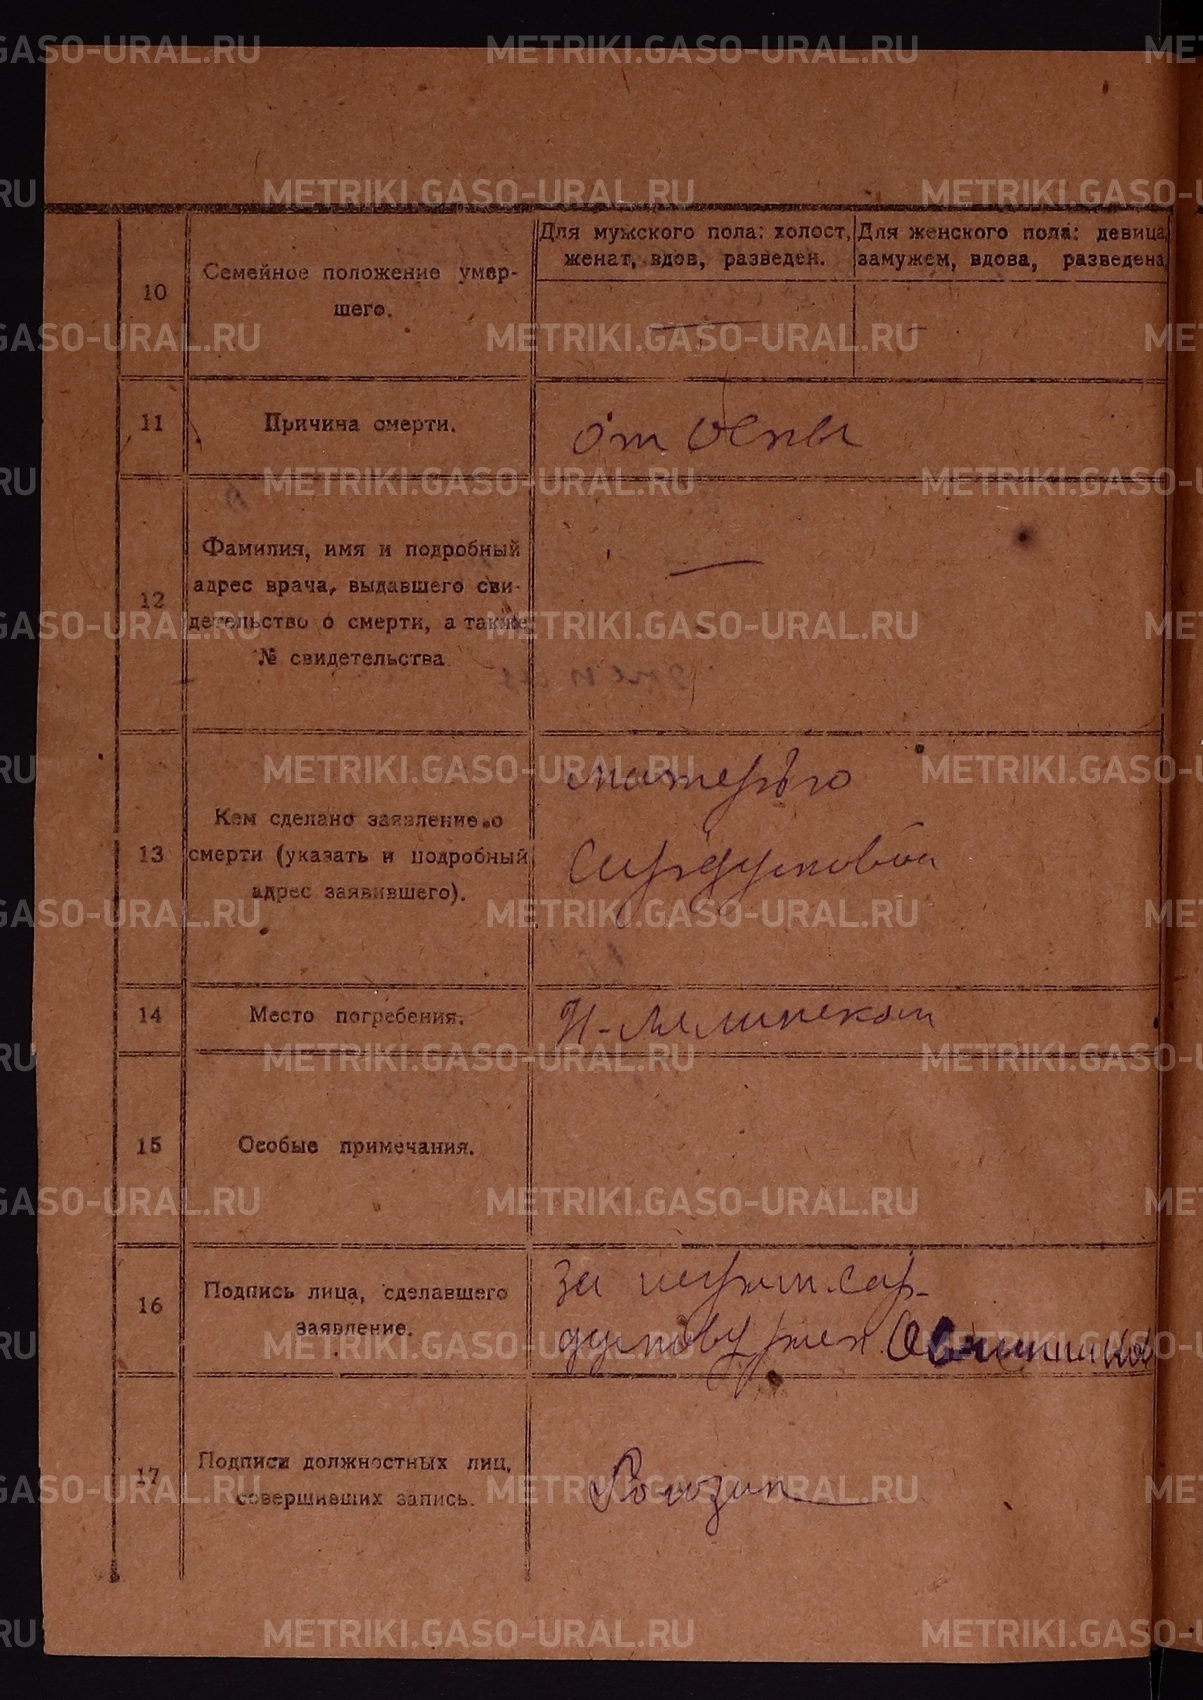 METRIKI.GASO-URAL.RU
Для мужского пола: холост, женат, вдов, разведен.
Для женского пола: девица, замужем, вдова, разведена
10
Семейное положение умер-
шего.
—
-
11
Причина смерти.
От Оспы
12
Фамилия, имя и подробный
адрес врача, выдавшего сви-
детельство о смерти, а также
№ свидетельства
—
13
Кем сделано заявление о
смерти (указать и подробный
адрес заявившего).
матерью
14
Место погребения.
15
Особые примечания.
16
Подпись лица, сделавшего
заявление.
За
17
Подписи должностных лиц,
совершивших запись.